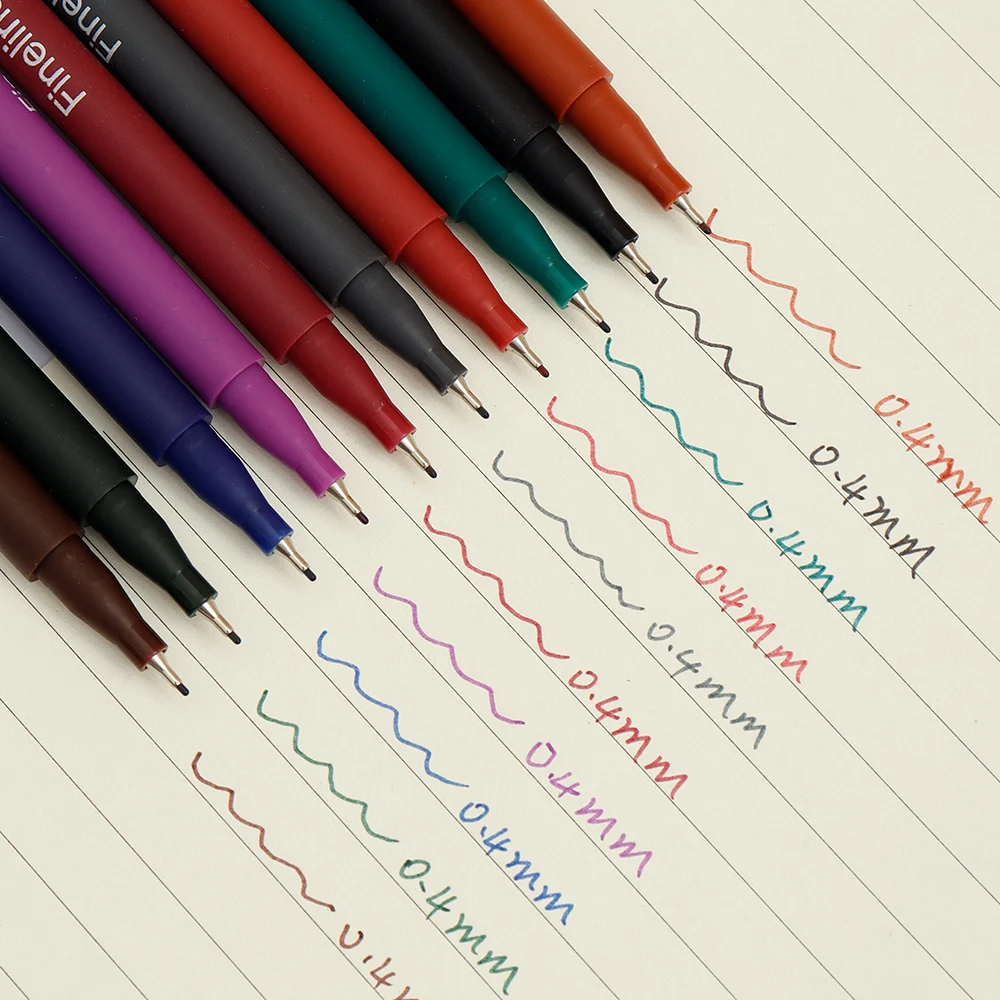 Finelin
Fine
0.4mm
0.4mm
0.4mm
0.4mm
0.4mm
0.4mm
0.4mm
0.4mm
0.4mm
0.4